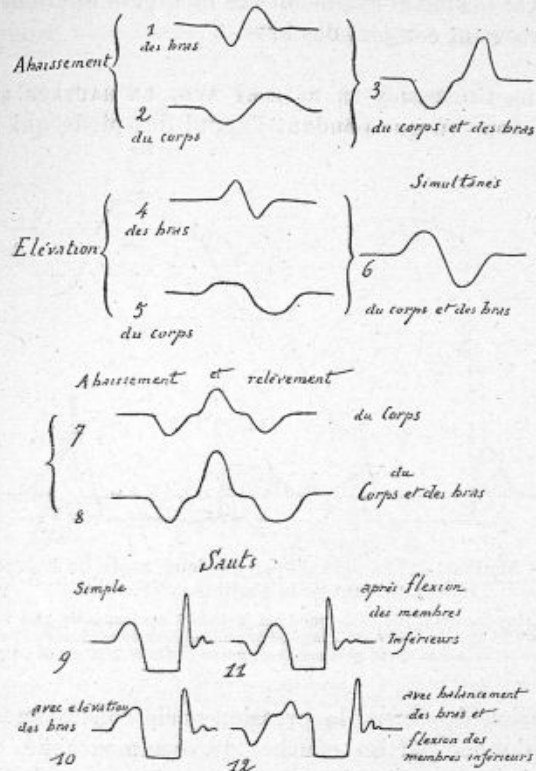 1
des bras
Abaissement
2
du corps
3
du corps et des bras
Simultanés
4
des bras
Elévation
5
du corps
6
du corps et des bras
Abaissement et relèvement
7
du Corps
8
du
Corps et des bras
Sauts
Simple
9
après flexion
des membres
Inférieurs
11
avec elévation
des bras
10
avec balancement
des bras et
flexion des
membres inférieurs
12